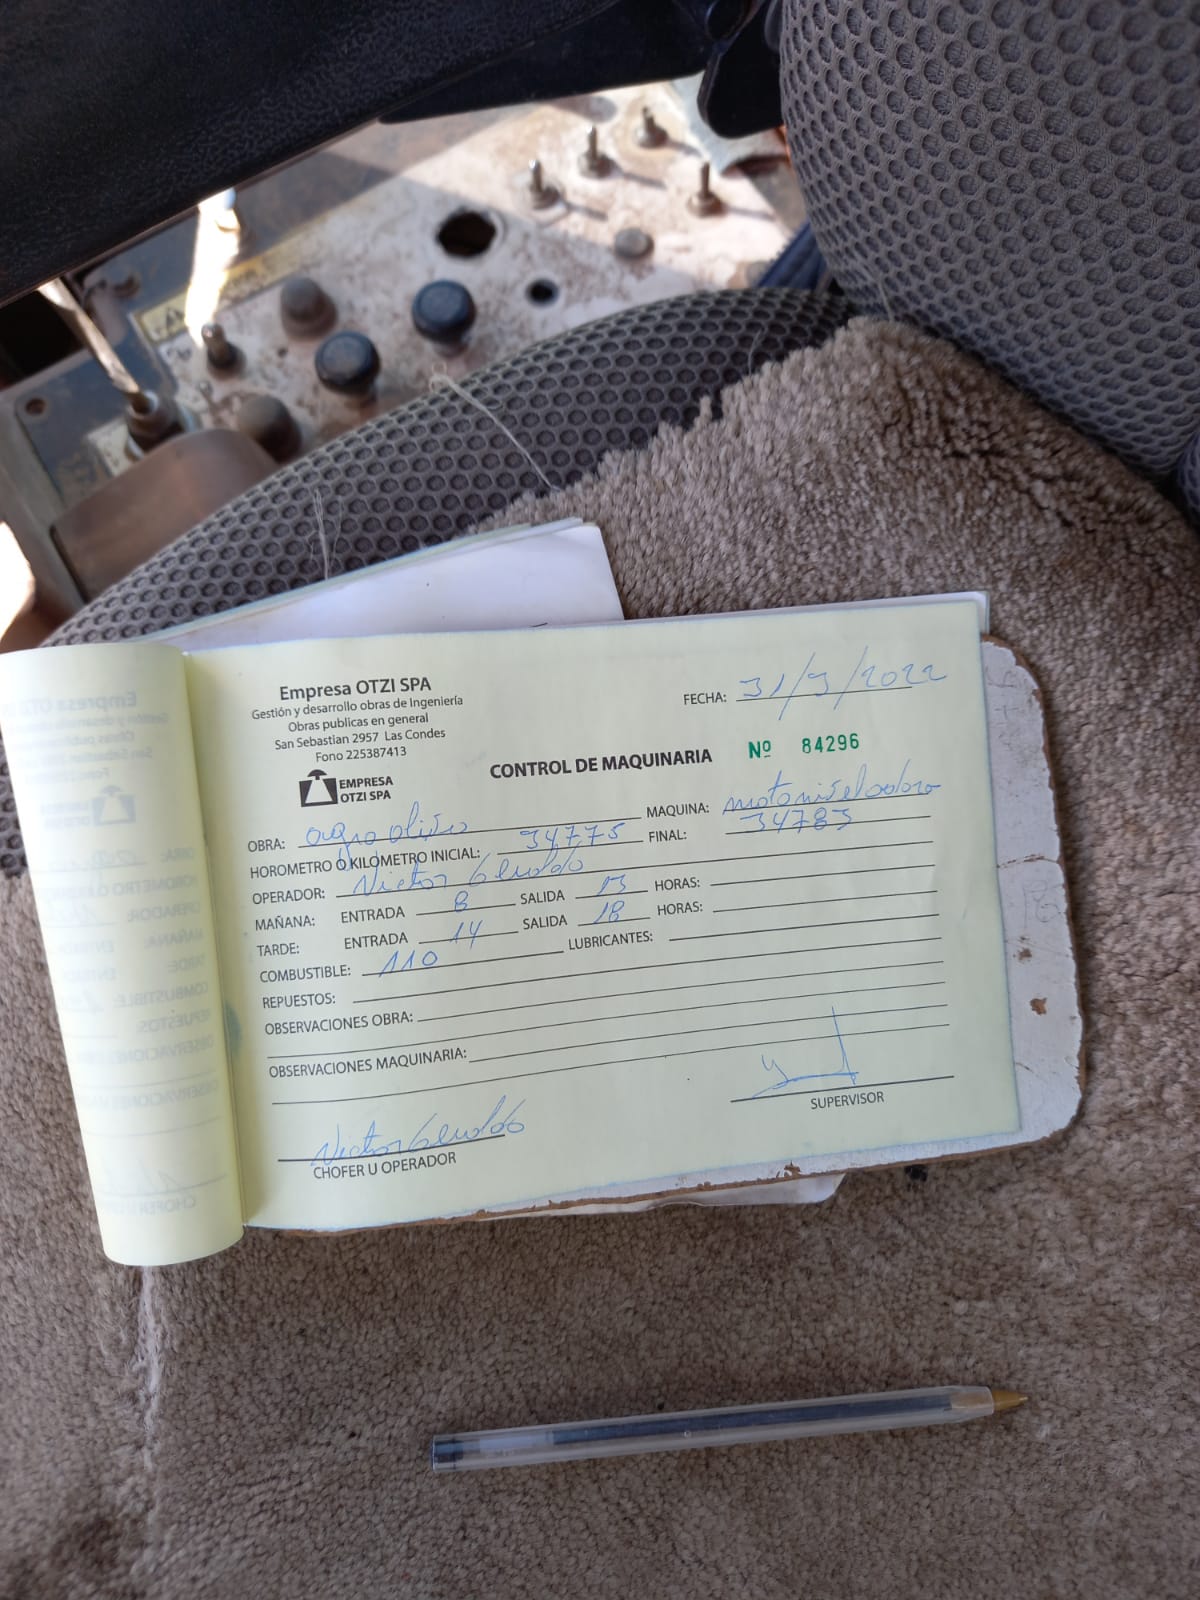 Empresa OTZI SPA
Gestión y desarrollo obras de Ingeniería
Obras publicas en general
San Sebastian 2957 Las Condes
Fono 225387413
EMPRESA
OTZI SPA
FECHA: 31/3/2022
CONTROL DE MAQUINARIA Nº 84296
OBRA: agro olivo MAQUINA: motoniveladora
HOROMETRO O KILOMETRO INICIAL: 34775 FINAL: 34783
OPERADOR: Victor
MAÑANA: ENTRADA 8 SALIDA 13 HORAS:
TARDE: ENTRADA 14 SALIDA 18 HORAS:
COMBUSTIBLE: 110 LUBRICANTES:
REPUESTOS:
OBSERVACIONES OBRA:
OBSERVACIONES MAQUINARIA:
Victor
CHOFER U OPERADOR
SUPERVISOR